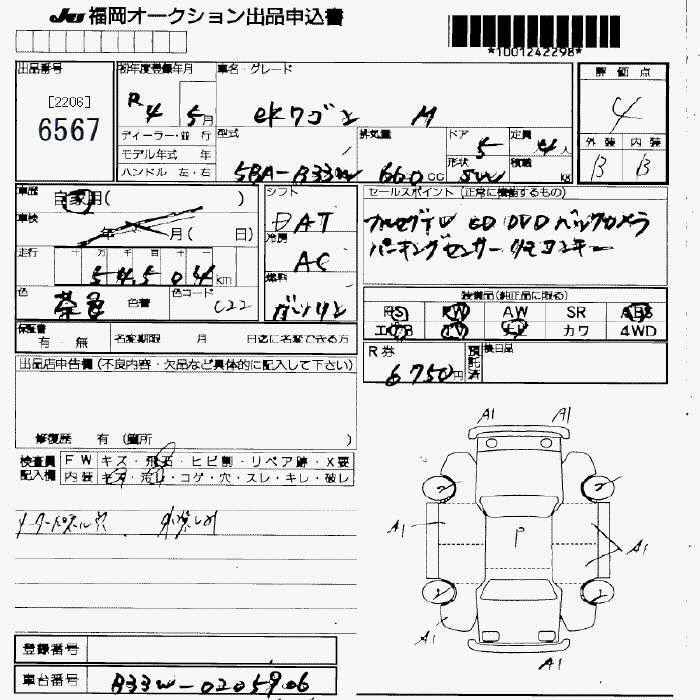 JU 福岡オークション出品申込書
*1001242298*
出品番号
[2206]
6567
初年度登録年月
R 4 5月
車名・グレード
ekワゴン M
評価点
4
外装 内装
B B
ディーラー・並行
モデル年式 年
ハンドル 左・右
型式
5BA-B33W
排気量
660cc
ドア
5
形状
SW
定員
4人
積載
kg
車歴
自家用( )
車検
年 月( 日)
走行
十 万 千 百 十 一
54504km
色
茶色
色替
色コード
C22
シフト
DAT
冷房
AC
燃料
ガソリン
セールスポイント(正常に機能するもの)
カロナビTV CD DVD バックカメラ
パーキングセンサー リモコンキー
装備品(純正品に限る)
PS PW AW SR ABS
エアB TV ナビ カワ 4WD
保証書
有・無
名変期限 月 日迄に名変できる方
R券
6750円
預託済
後日品
出品店申告欄(不良内容・欠品など具体的に記入して下さい)
修復歴 有(箇所 )
検査員記入欄
FW キズ・飛石・ヒビ割・リペア跡・X要
内装 キズ・汚レ・コゲ・穴・スレ・キレ・破レ
A1 A1
A1 P A1
A1
A1
登録番号
車台番号
B33W-0205906